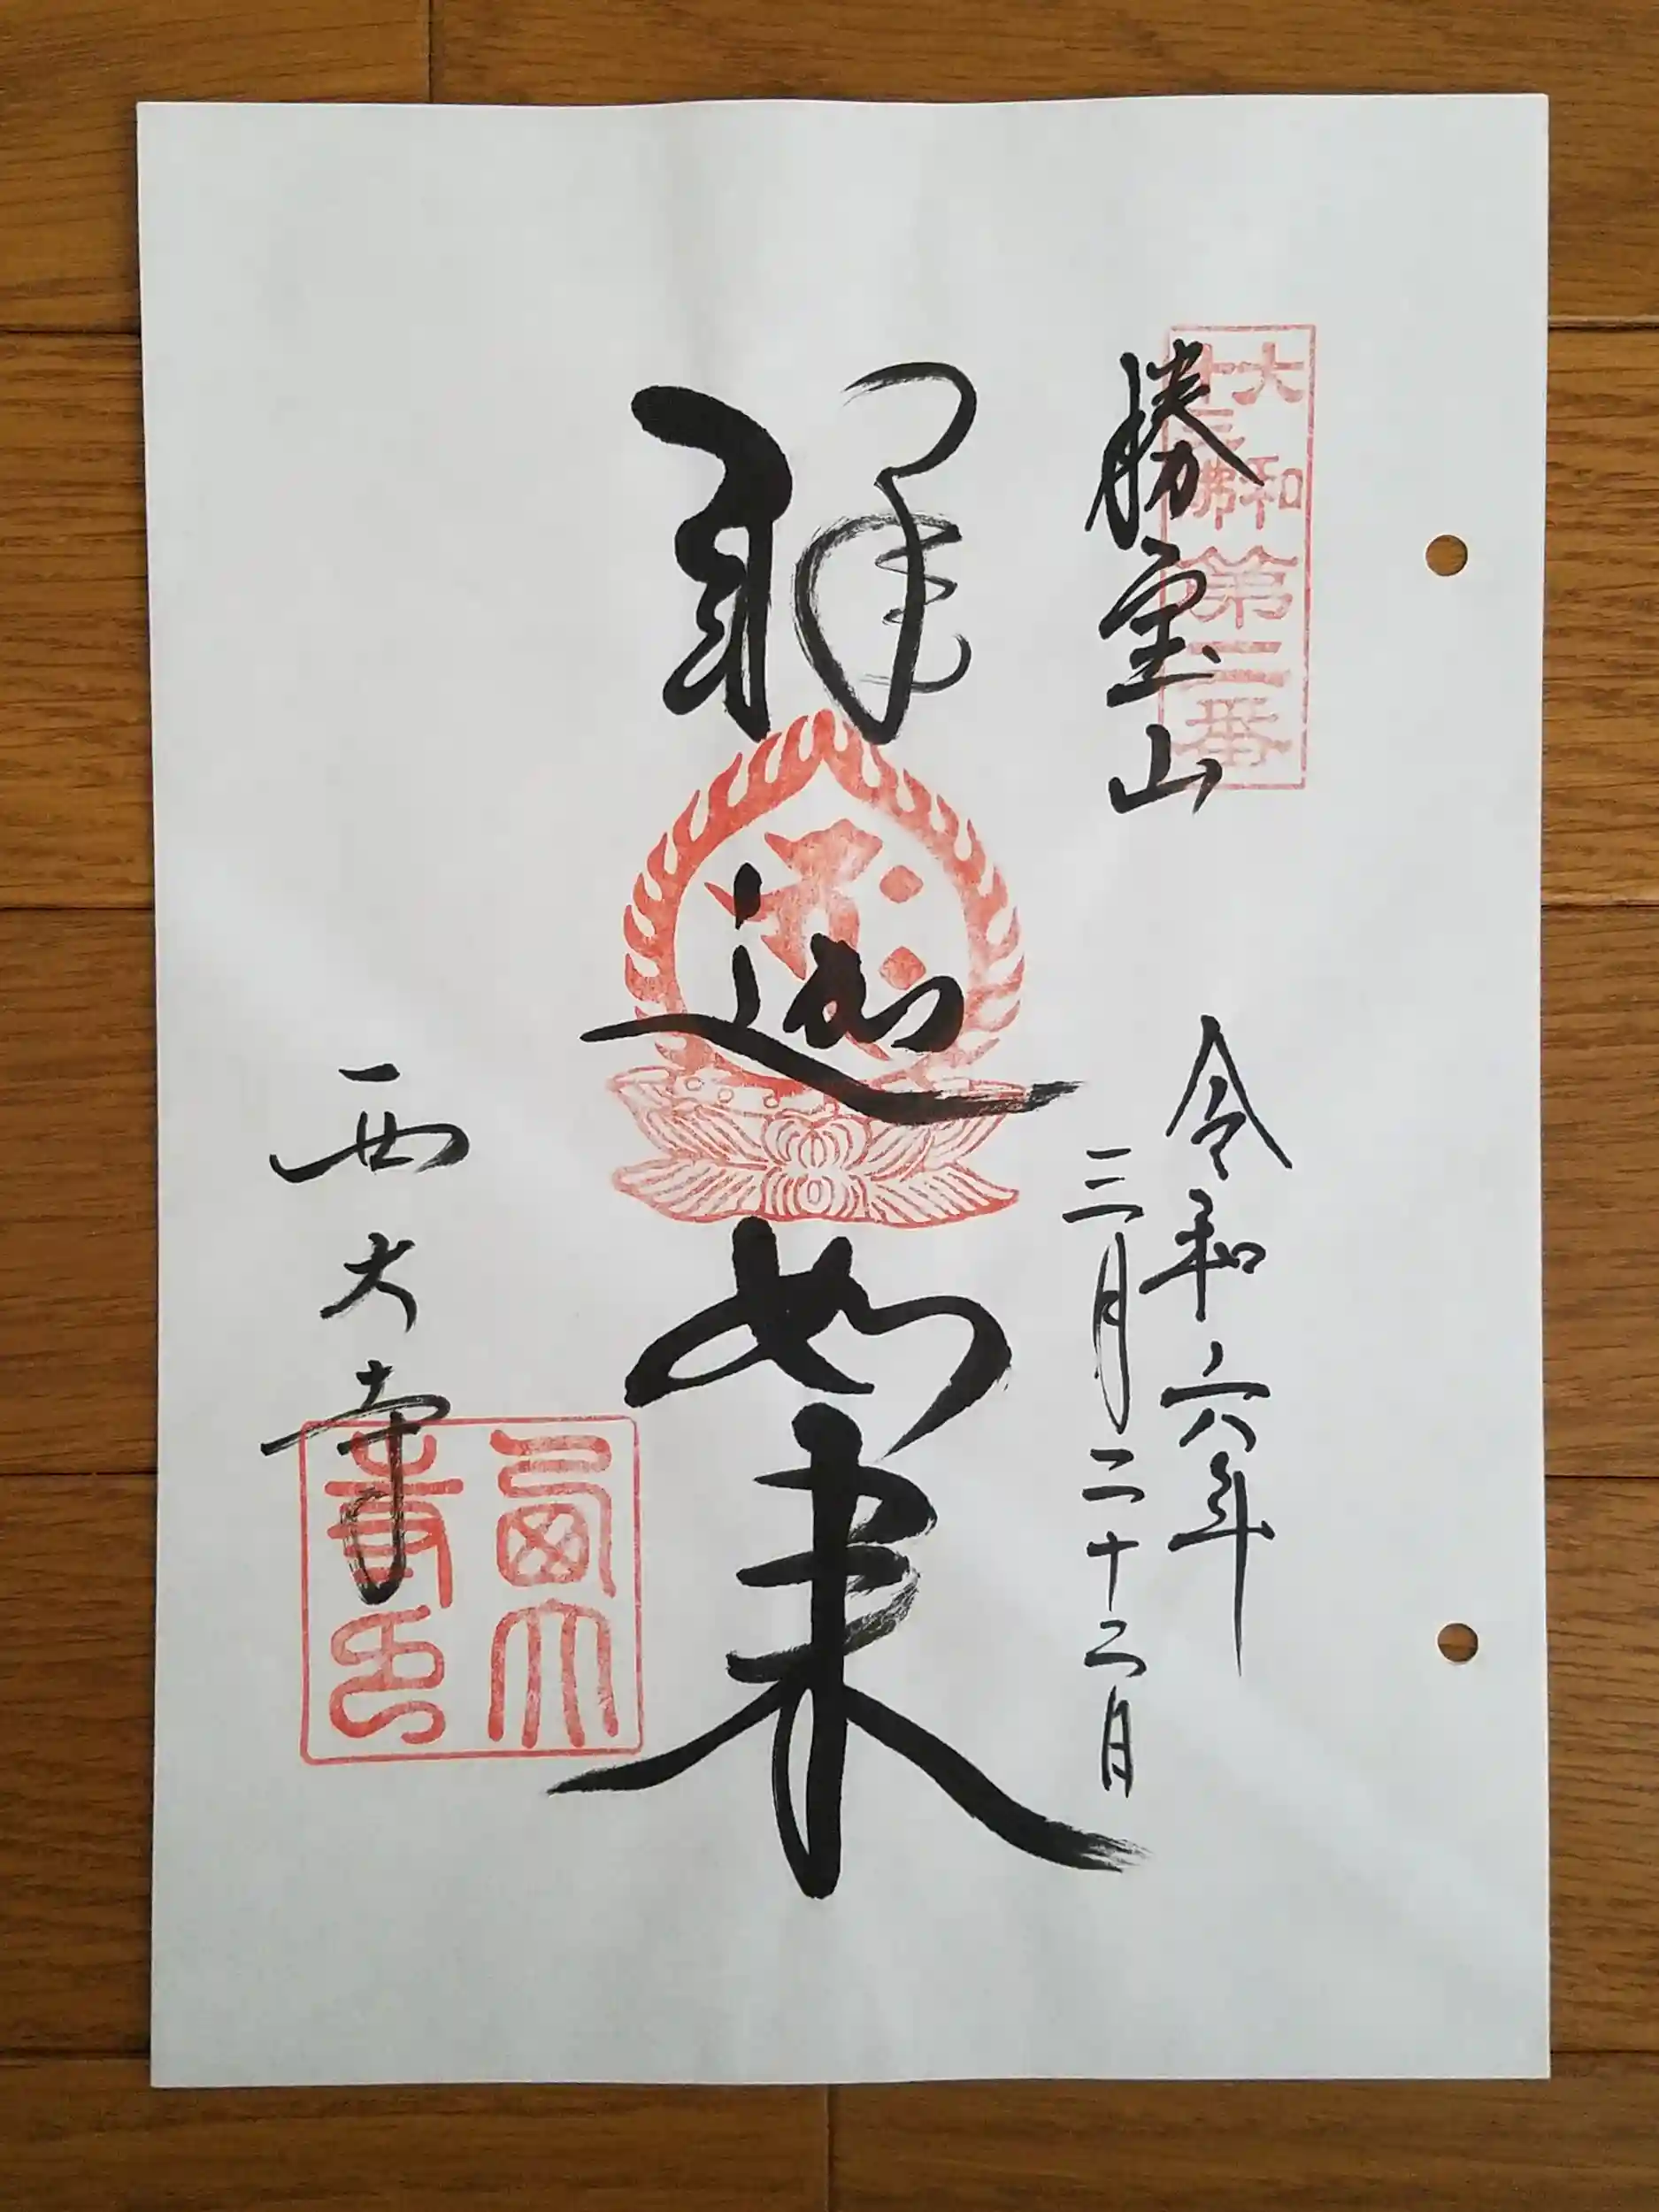 大和
十三佛
第二番
勝宝山
令和六年
三月二十二日
釈迦如来
西大寺
西大
寺印